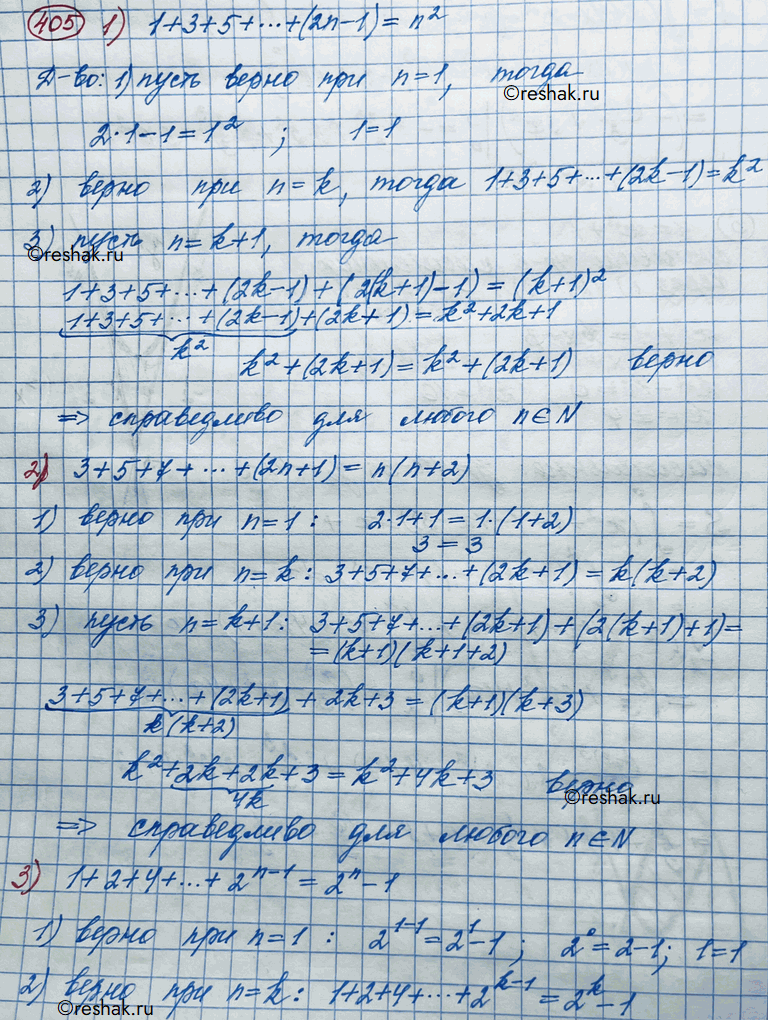 405 1) 1+3+5+...+(2n-1)=n²
Д-во: 1) пусть верно при n=1, тогда
©reshak.ru
2·1-1=1² ; 1=1
2) верно при n=k, тогда 1+3+5+...+(2k-1)=k²
3) пусть n=k+1, тогда
©reshak.ru
1+3+5+...+(2k-1)+(2(k+1)-1)=(k+1)²
1+3+5+...+(2k-1)+(2k+1)=k²+2k+1
k²
k²+(2k+1)=k²+(2k+1) верно
=> справедливо для любого n∈N
2) 3+5+7+...+(2n+1)=n(n+2)
1) верно при n=1: 2·1+1=1·(1+2)
3=3
2) верно при n=k: 3+5+7+...+(2k+1)=k(k+2)
3) пусть n=k+1: 3+5+7+...+(2k+1)+(2(k+1)+1)=
=(k+1)(k+1+2)
3+5+7+...+(2k+1)+2k+3=(k+1)(k+3)
k(k+2)
k²+2k+2k+3=k²+4k+3 верно
4k
©reshak.ru
=> справедливо для любого n∈N
3) 1+2+4+...+2ⁿ⁻¹=2ⁿ-1
1) верно при n=1: 2¹⁻¹=2¹-1; 2⁰=2-1; 1=1
2) верно при n=k: 1+2+4+...+2ᵏ⁻¹=2ᵏ-1
©reshak.ru